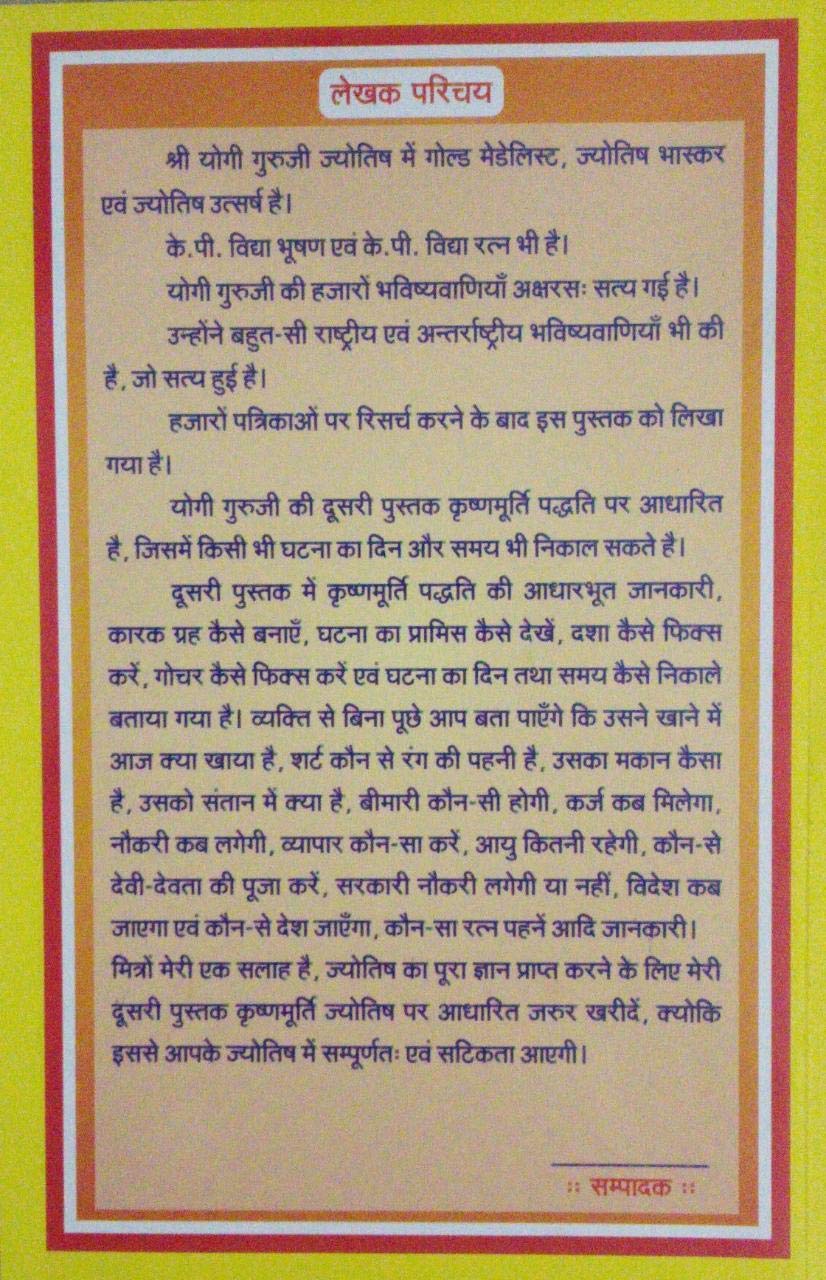 लेखक परिचय
श्री योगी गुरुजी ज्योतिष में गोल्ड मेडेलिस्ट, ज्योतिष भास्कर
एवं ज्योतिष उत्सर्ष है।
के.पी. विद्या भूषण एवं के.पी. विद्या रत्न भी है।
योगी गुरुजी की हजारों भविष्यवाणियाँ अक्षरसः सत्य गई है।
उन्होंने बहुत-सी राष्ट्रीय एवं अन्तर्राष्ट्रीय भविष्यवाणियाँ भी की
है, जो सत्य हुई है।
हजारों पत्रिकाओं पर रिसर्च करने के बाद इस पुस्तक को लिखा
गया है।
योगी गुरुजी की दूसरी पुस्तक कृष्णमूर्ति पद्धति पर आधारित
है, जिसमें किसी भी घटना का दिन और समय भी निकाल सकते है।
दूसरी पुस्तक में कृष्णमूर्ति पद्धति की आधारभूत जानकारी,
कारक ग्रह कैसे बनाएँ, घटना का प्रामिस कैसे देखें, दशा कैसे फिक्स
करें, गोचर कैसे फिक्स करें एवं घटना का दिन तथा समय कैसे निकाले
बताया गया है। व्यक्ति से बिना पूछे आप बता पाएँगे कि उसने खाने में
आज क्या खाया है, शर्ट कौन से रंग की पहनी है, उसका मकान कैसा
है, उसको संतान में क्या है, बीमारी कौन-सी होगी, कर्ज कब मिलेगा,
नौकरी कब लगेगी, व्यापार कौन-सा करें, आयु कितनी रहेगी, कौन-से
देवी-देवता की पूजा करें, सरकारी नौकरी लगेगी या नहीं, विदेश कब
जाएगा एवं कौन-से देश जाएँगा, कौन-सा रत्न पहनें आदि जानकारी।
मित्रों मेरी एक सलाह है, ज्योतिष का पूरा ज्ञान प्राप्त करने के लिए मेरी
दूसरी पुस्तक कृष्णमूर्ति ज्योतिष पर आधारित जरुर खरीदें, क्योकि
इससे आपके ज्योतिष में सम्पूर्णतः एवं सटिकता आएगी।
:: सम्पादक ::